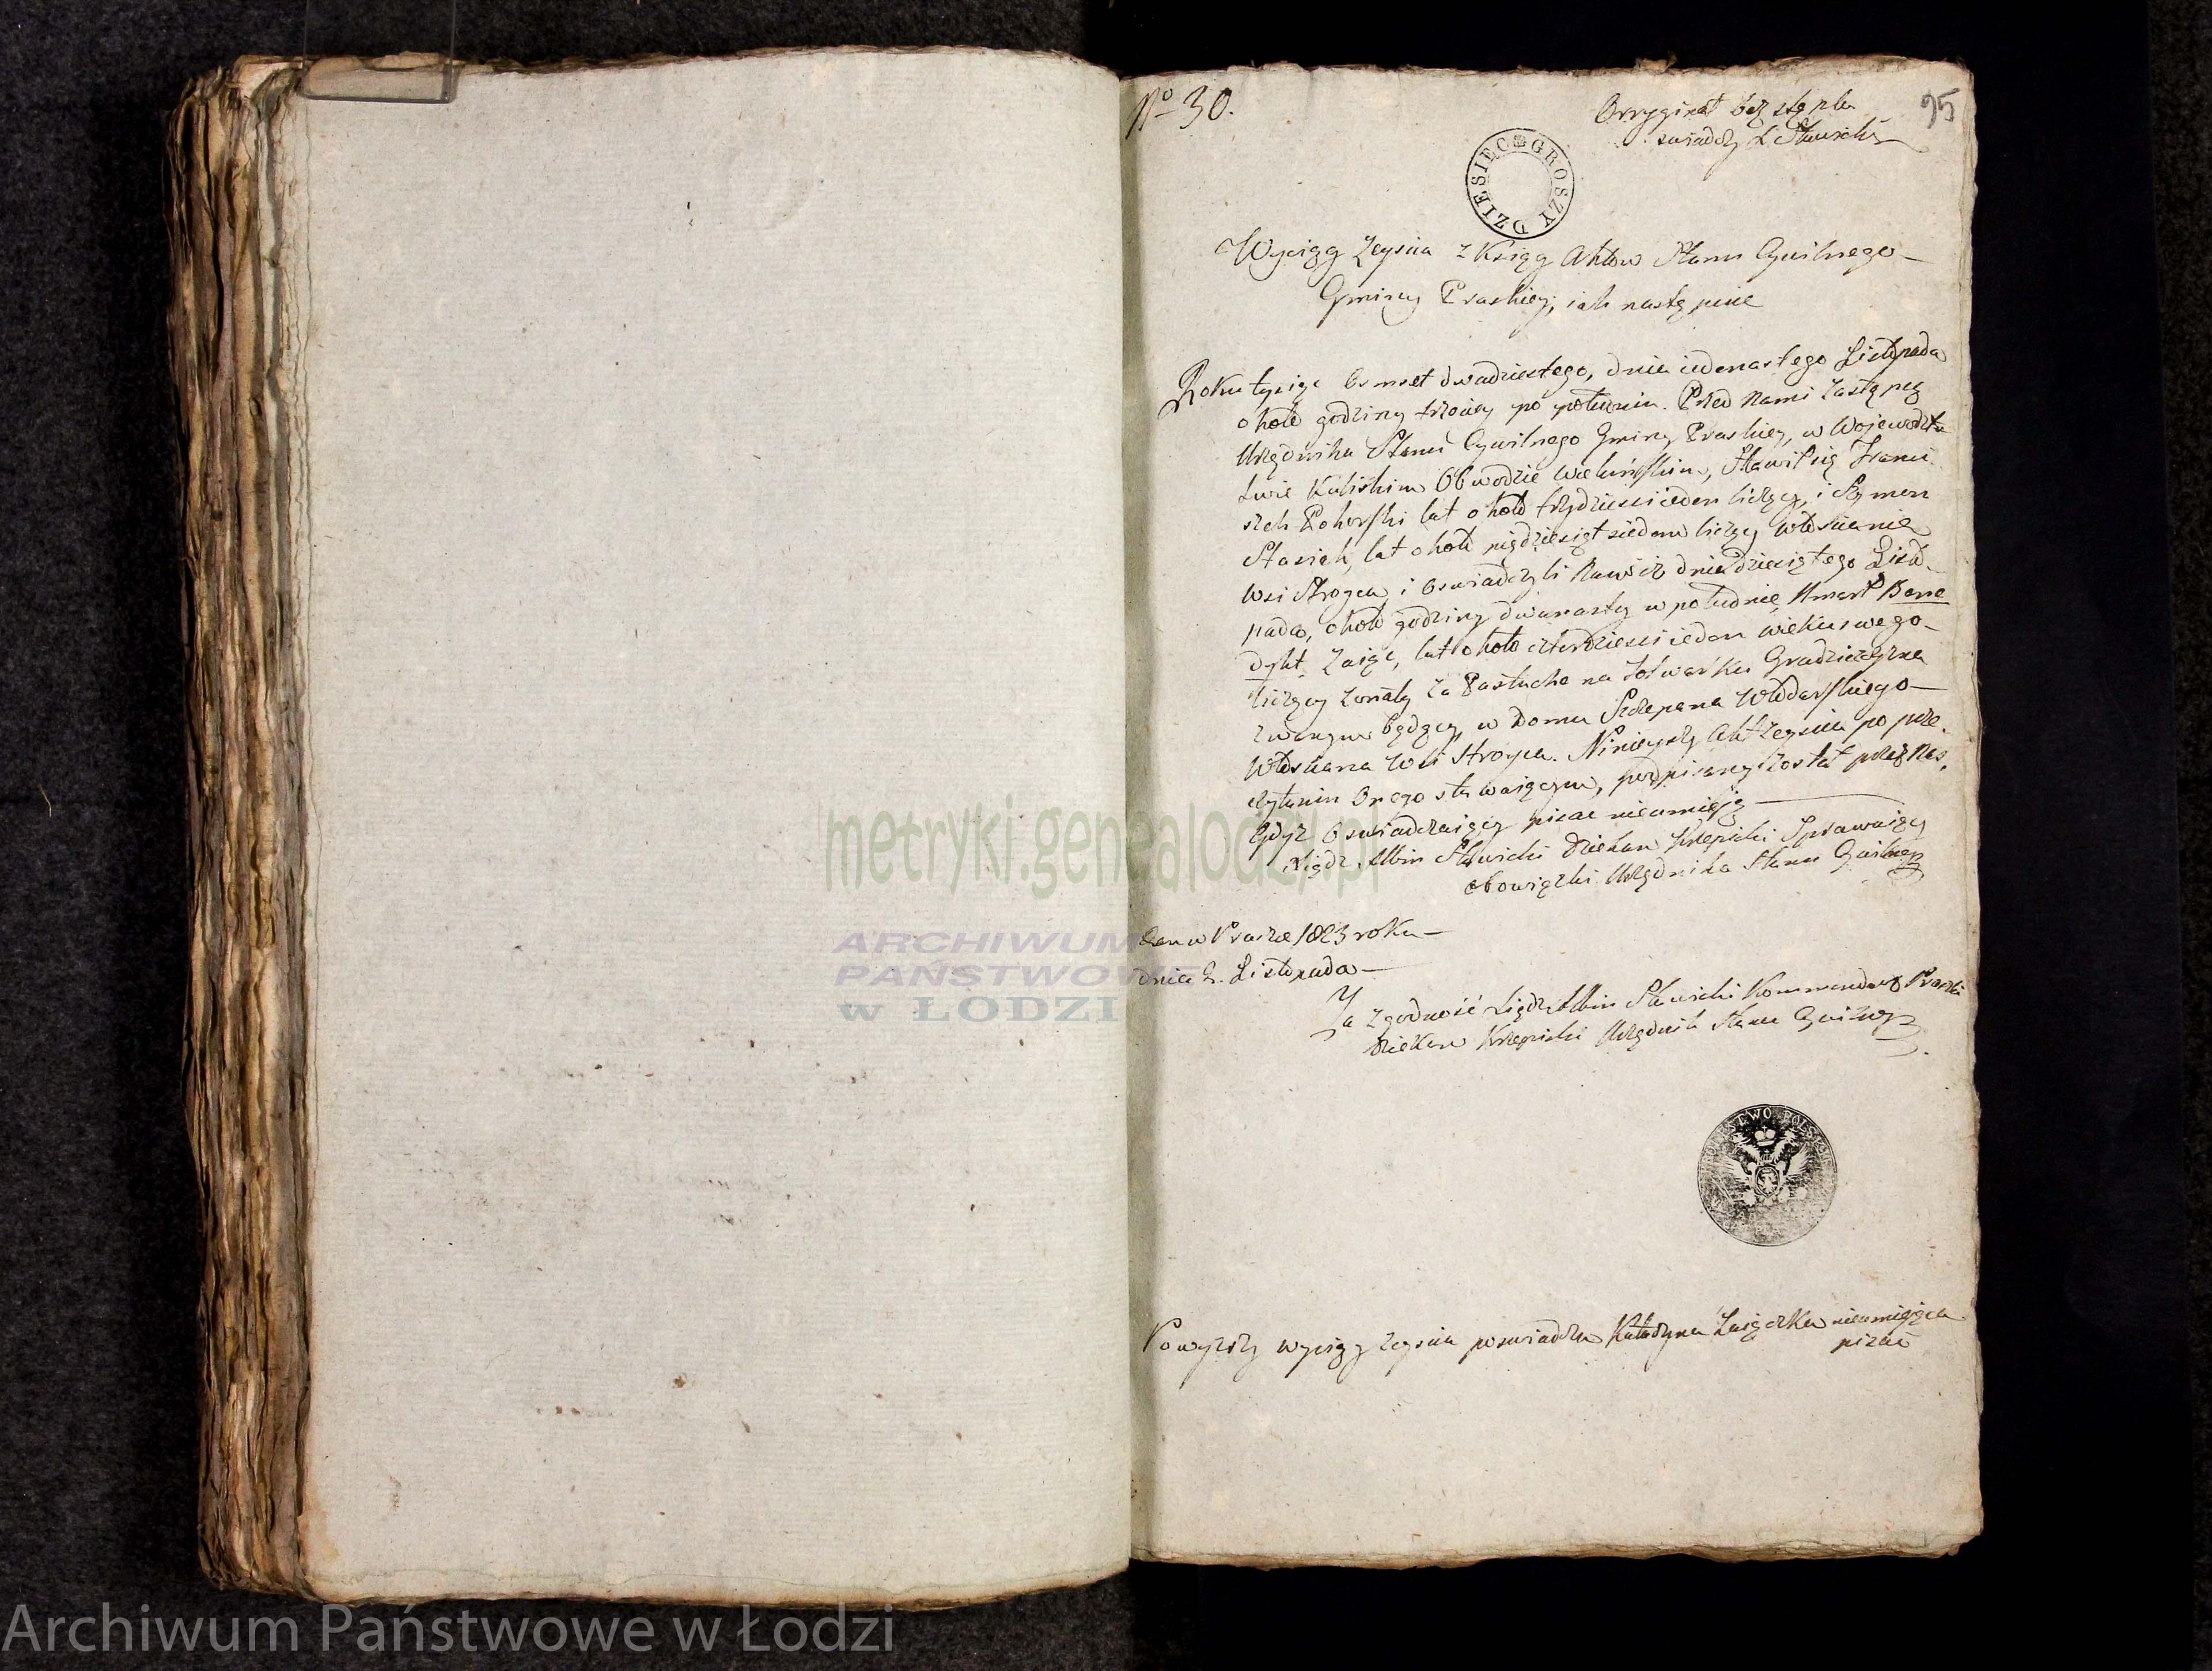 No 30.
Orryginał bez stępla
95
świadczy X Sławicki
DZIESIEC GROSZY
Wyciąg Zeyścia z Ksiąg Aktów Stanu Cywilnego
Gminy Praskiey, iak następuie
Roku tysiąc osmset dwudziestego, dnia iedenastego Listopada
około godziny trzeciey po południu. Przed Nami Zastępcą
Urzędnika Stanu Cywilnego Gminy Praskiey, w Wojewodz
twie Kaliskim Obwodzie Wieluńskim, Stawił się Franci
szek Pokorski lat około trzydzieści ieden liczący, i Szymon
Stasiak, lat około pięćdziesiąt siedem liczący Włościanie
Wsi Stroyca i oświadczyli Nam iż dnia dziesiątego Listo
pada, około godziny dwunastey w południe, Umarł Bene
dykt Zaiąc, lat około czterdzieści ieden wieku swego
liczący żonaty za Pastucha na folwarku
zwanym będący w Domu Szczepana Włodarskiego
Włościana Wsi Stroyca. Ninieyszy Akt Zeyścia po prze
czytaniu onego stawaiącym, podpisany został przez Nas,
gdyż oświadczaiący pisać nieumieią
Xiądz Albin Sławicki Dziekan Krzepicki Sprawuiący
obowiązki Urzędnika Stanu Cywilnego
metryki.genealodzy.pl
ARCHIWUM
PAŃSTWOWE
w ŁODZI
Dan w Praszce 1823 roku
dnia 2. Listopada
Za zgodność Xiądz Albin Sławicki Kommendarz Praszki
Dziekan Krzepicki Urzędnik Stanu Cywilnego
KRÓLESTWO POLSKIE
Powyższy wyciąg zeyścia poświadcza Katarzyna Zaiączka nieumieiąca
pisać
Archiwum Państwowe w Łodzi